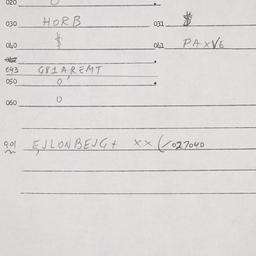 020 0
030 HORB 031 $
040 $ 041 PAXV6
043 G81AREMT
050 0
060 0
901 EJLONBEJG+ XX (/027040